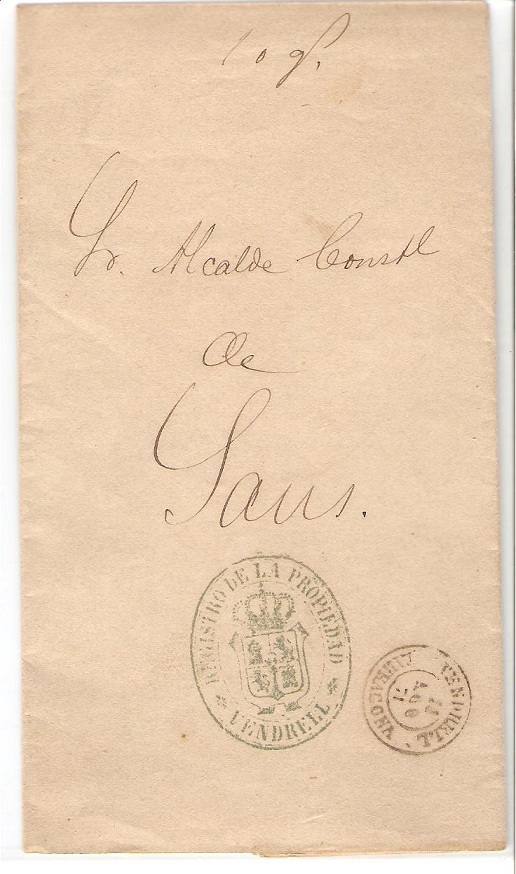 10 g.
Sr. Alcalde Constl
de
Sans.
REGISTRO DE LA PROPIEDAD
VENDRELL
VENDRELL
13
AGO
71
TARRAGONA